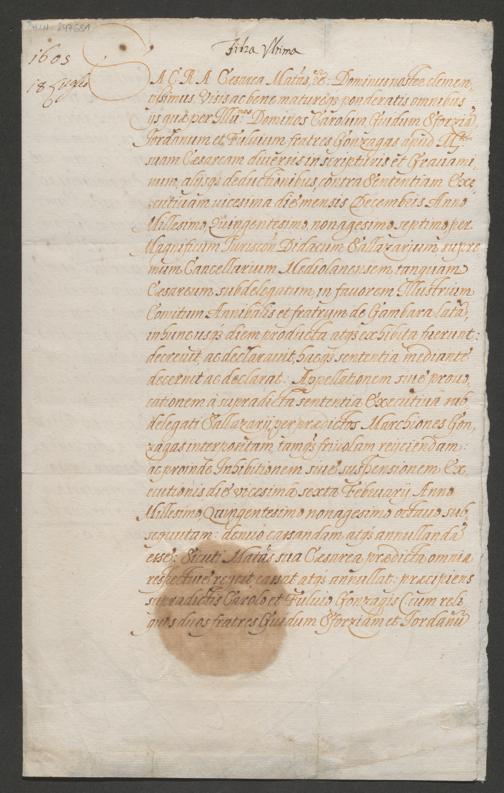 1603
18 Luglio
Filza Ultima
SACRA Cæsarea Matas, etc: Dominus noster clemen
tissimus, Visis ac bene maturèqs ponderatis omnibus
ijs quæ per Illu.res Dominos Carolum Guidum Sforzia,
Jordanum et Fuluium fratres Gonzagas apud M.tem
suam Cæsaream diuersis in scripturis et Grauami
num, alijsqs deductionibus, contra Sententiam Exe,
cutiuam vicesima die mensis Decembris Anno
Millesimo, Quingentesimo, nonagesimo septimo, per
Magnificum Jurisçon: Didacum Sallazarium, supre
mum Cancellarium Mediolanensem, tanquam
Cæsareum, subdelegatum, in fauorem Illustrium
Comitum Annibalis et fratrum de Gambara lata,
in hunc usqs diem producta atqs exhibita fuerunt:
decreuit, ac declarauit, hacqs sententia mediante
decernit ac declarat: Appellationem siue prouo,
cationem à supradicta sententia Executiua sub
delegati Sallazarij per prædictos Marchiones Gon,
zagas interpositam, tamqs friuolam reijciendam:
ac proinde Inhibitionem siue suspensionem Ex,
ecutionis die vicesima sexta Februarij Anno
Millesimo, Quingentesimo nonagesimo octauo sub,
sequutam: denuo cassandam atqs annullanda
esse: Sicuti Matas sua Cæsarea prædicta omnia
respectiuè rejicit cassat atqs annullat: præcipiens
supradictis Carolo et Fuluio Gonzagis (cum reli
quos duos fratres Guidum Sforziam et Jordanu